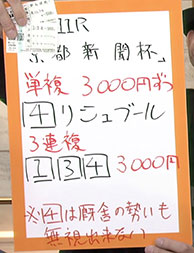 11R
京都新聞杯」
単複 3000円ずつ
4 リシュブール
3連複
1 3 4 3000円
※4は厩舎の勢いも
無視出来ない